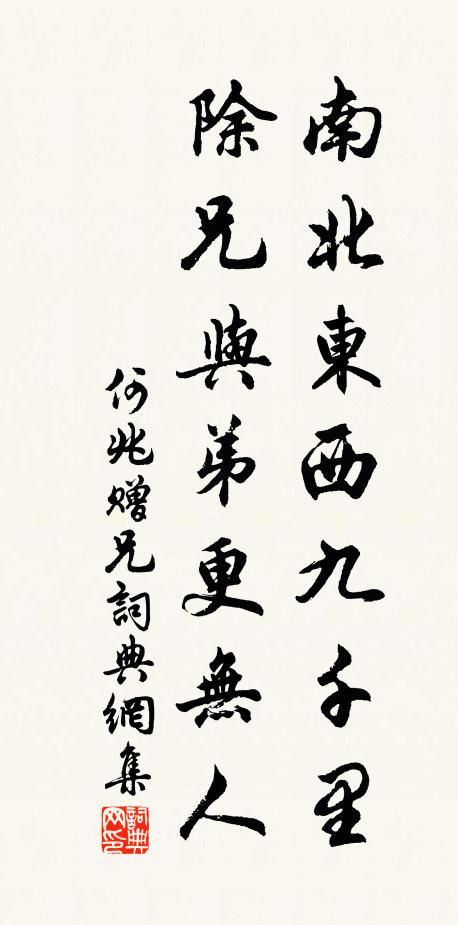 南北東西九千里
除兄與弟更無人
何兆贈兄詞典網集
詞典网印